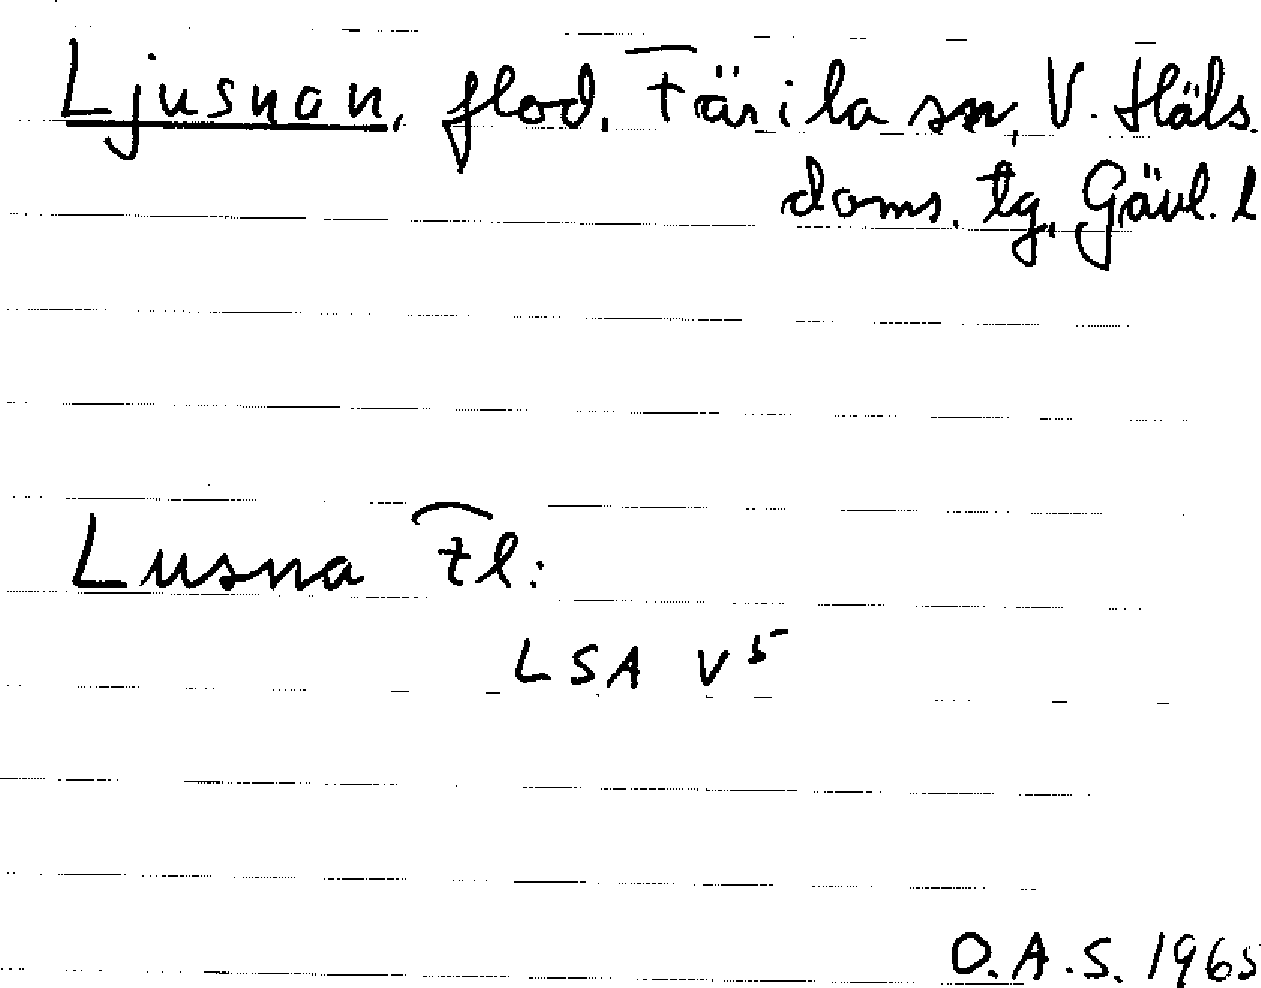 Ljusnan, flod. Färila sn, V. Häls.
doms. tg, Gävl. l
Lusna Fl:
LSA V5
O.A.S. 1965